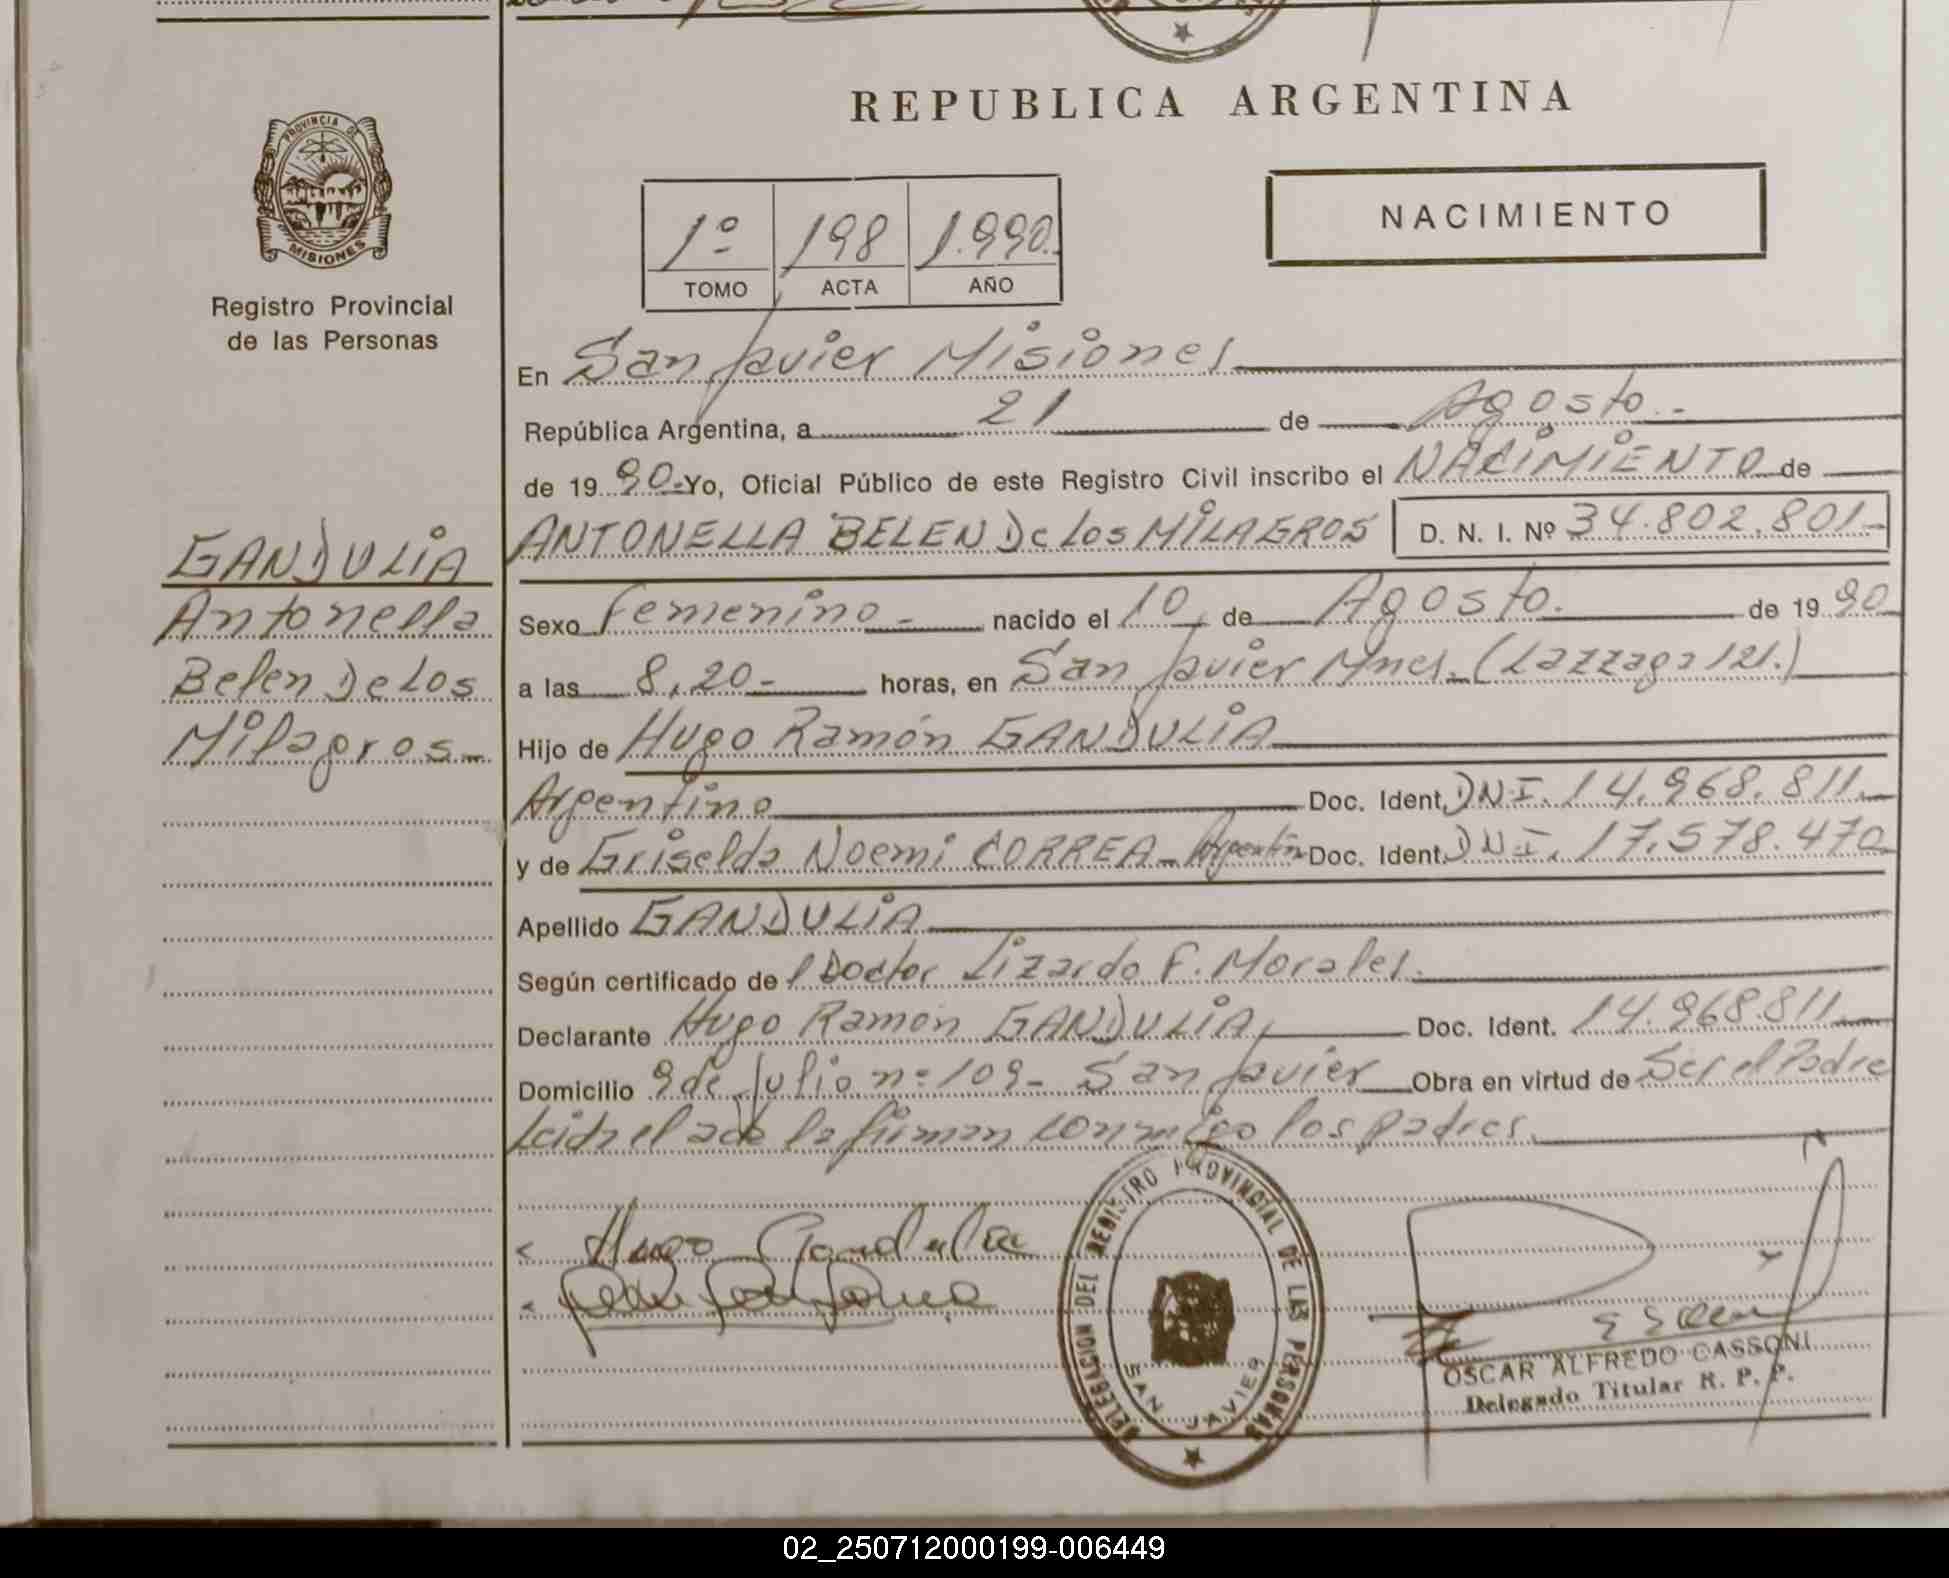 PROVINCIA DE
MISIONES
Registro Provincial
de las Personas
REPUBLICA ARGENTINA
NACIMIENTO
1º 198 1.990.
TOMO ACTA AÑO
En San Javier Misiones
República Argentina, a 21 de Agosto.-
de 19 90.- Yo, Oficial Público de este Registro Civil inscribo el NACIMIENTO de
ANTONELLA BELEN De los MILAGROS D. N. I. Nº 34.802.801.-
GANDULIA
Antonella
Belen De Los
Milagros.-
Sexo Femenino.- nacido el 10 de Agosto. de 19 90
a las 8,20.- horas, en San Javier Mnes. (Lazzaga 121.)
Hijo de Hugo Ramón GANDULIA
Argentino Doc. Ident. DNI. 14.968.811.-
y de Griselda Noemi CORREA - Argentina Doc. Ident. DNI. 17.578.470
Apellido GANDULIA
Según certificado de l Doctor Lizardo F. Morales.
Declarante Hugo Ramón GANDULIA, Doc. Ident. 14.968.811.-
Domicilio 9 de Julio nº 109- San Javier Obra en virtud de Ser el Padre
Leida el acta la firman conmigo los padres.
Hugo Gandulia
DELEGACION DEL REGISTRO PROVINCIAL DE LAS PERSONAS
SAN JAVIER
OSCAR ALFREDO CASSONI
Delegado Titular R. P. P.
02_250712000199-006449